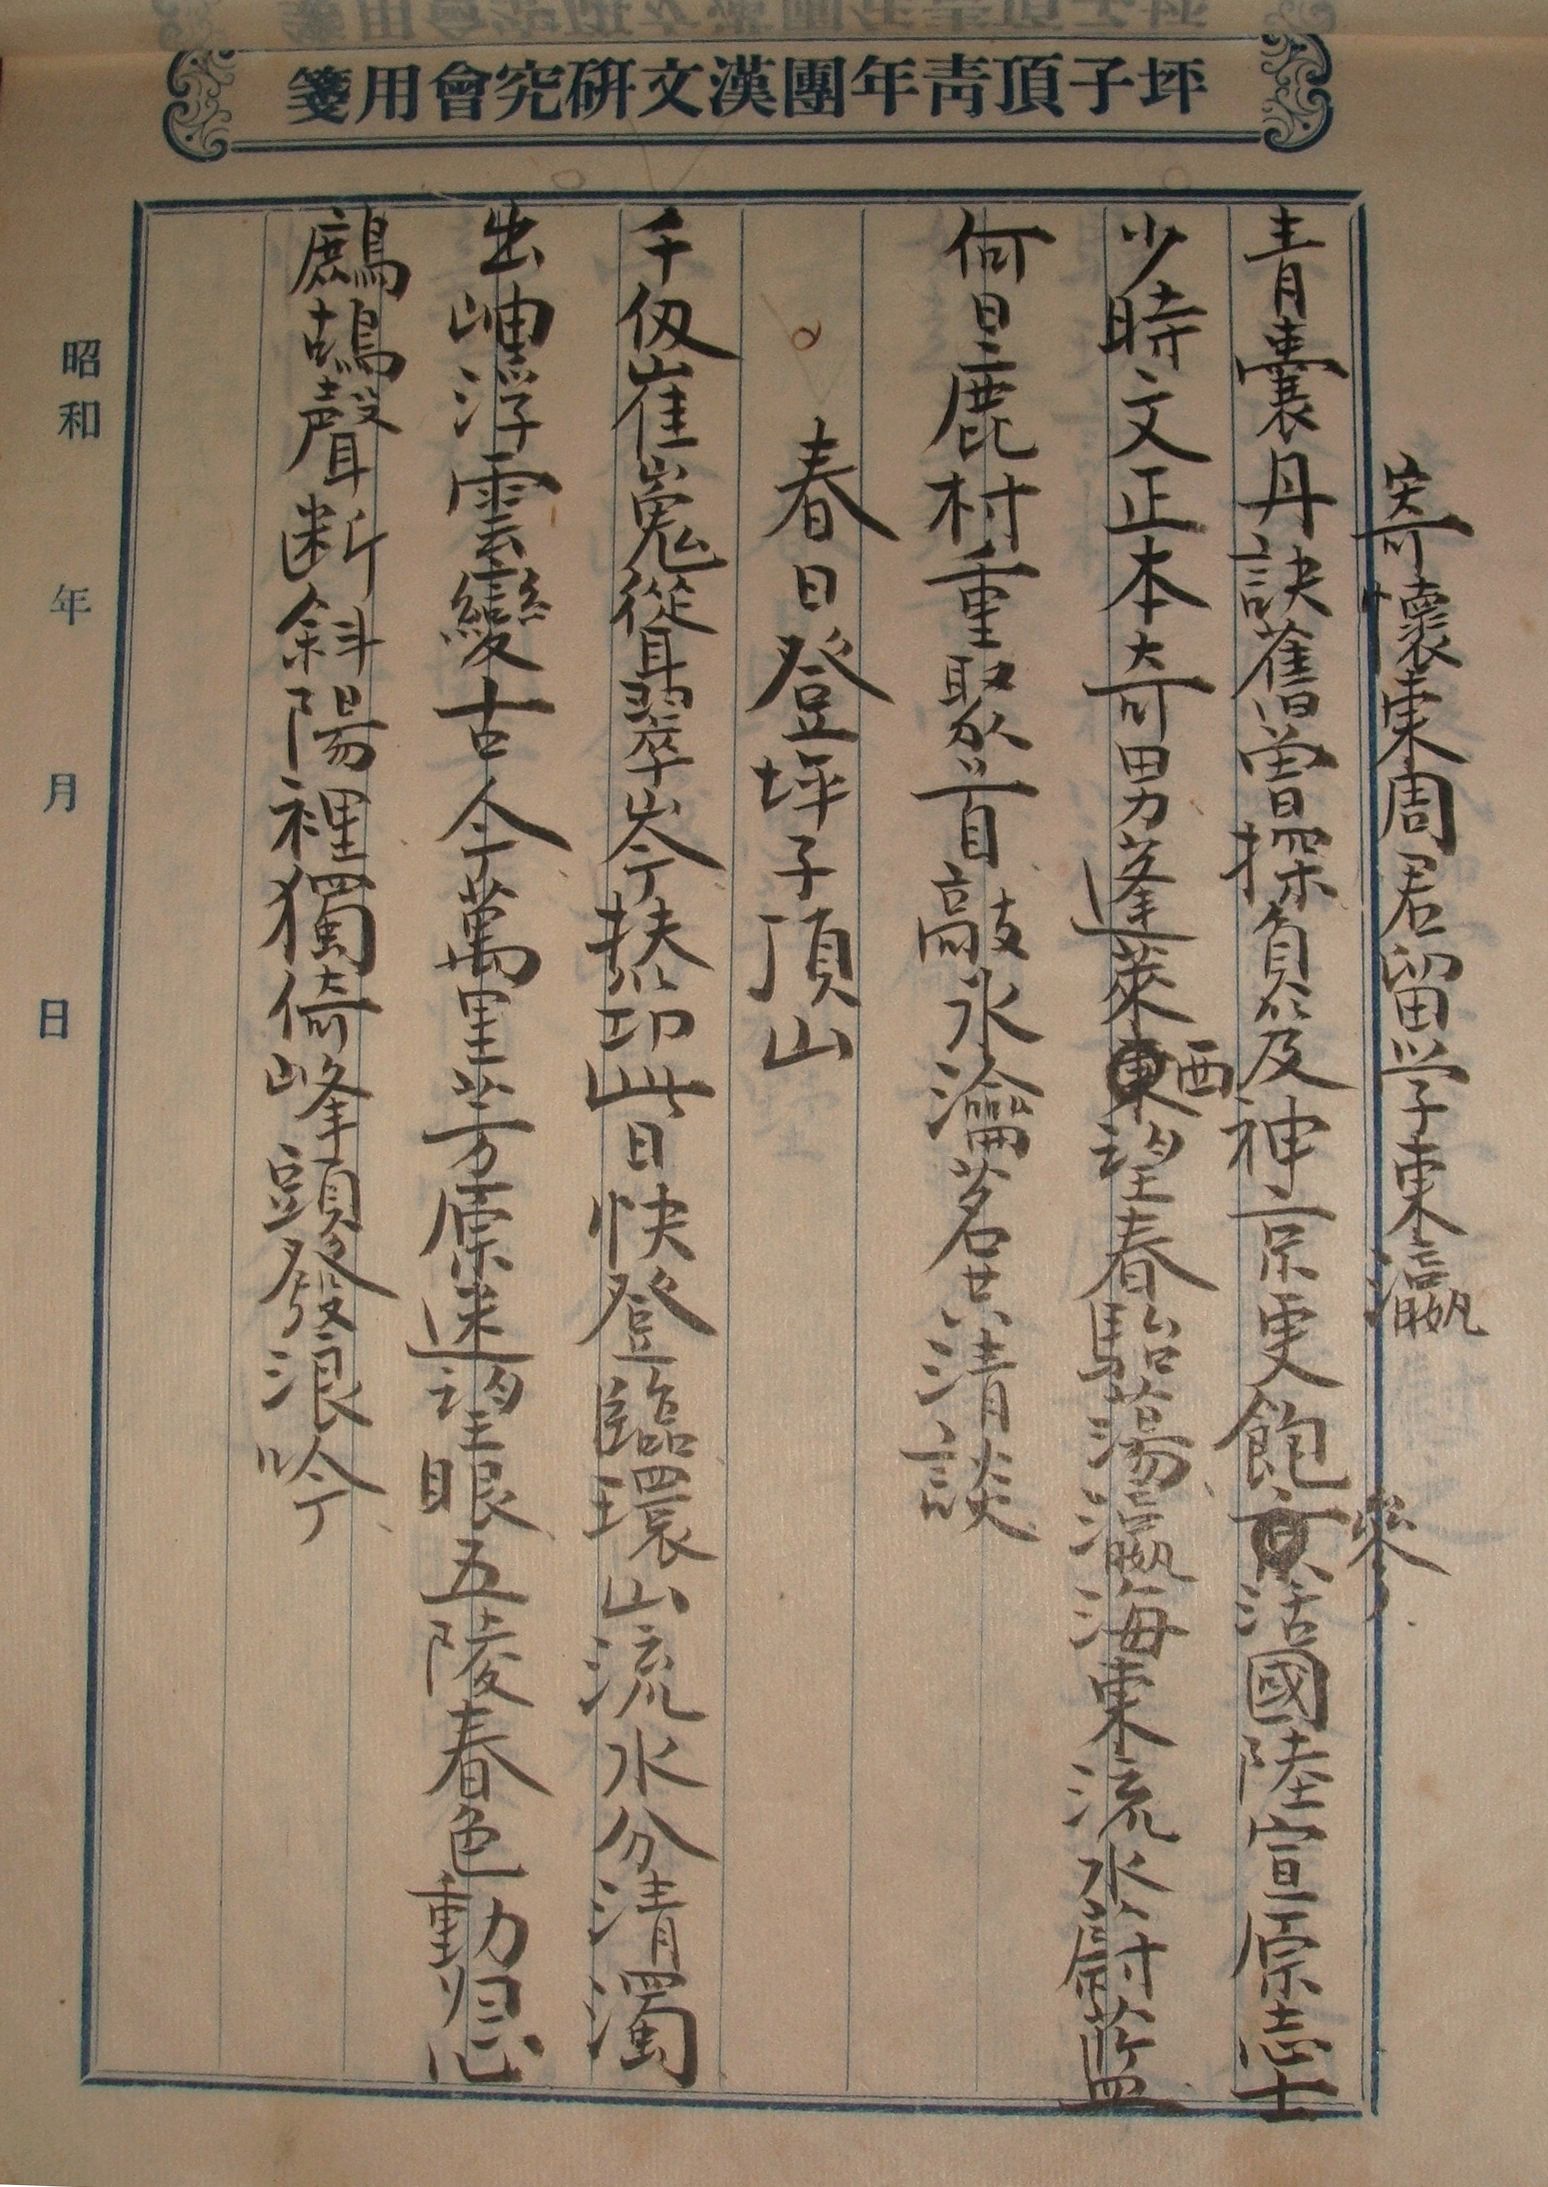 坪子頂青年團漢文研究會用箋
寄懷東周君留学東瀛
青囊丹訣舊曾探負笈神京更飽參活國陸宣原志士
少時文正本奇男蓬萊西望春駘蕩瀛海東流水蔚藍
何日鹿村重聚首敲氷瀹茗共清談
春日登坪子頂山
千仭崔嵬聳翠岑扶笻此日快登臨環山流水分清濁
出岫浮雲變古今萬里芳原迷望眼五陵春色動归心
鷓鴣聲断斜陽裡獨倚峰頭發浪吟
昭和 年 月 日